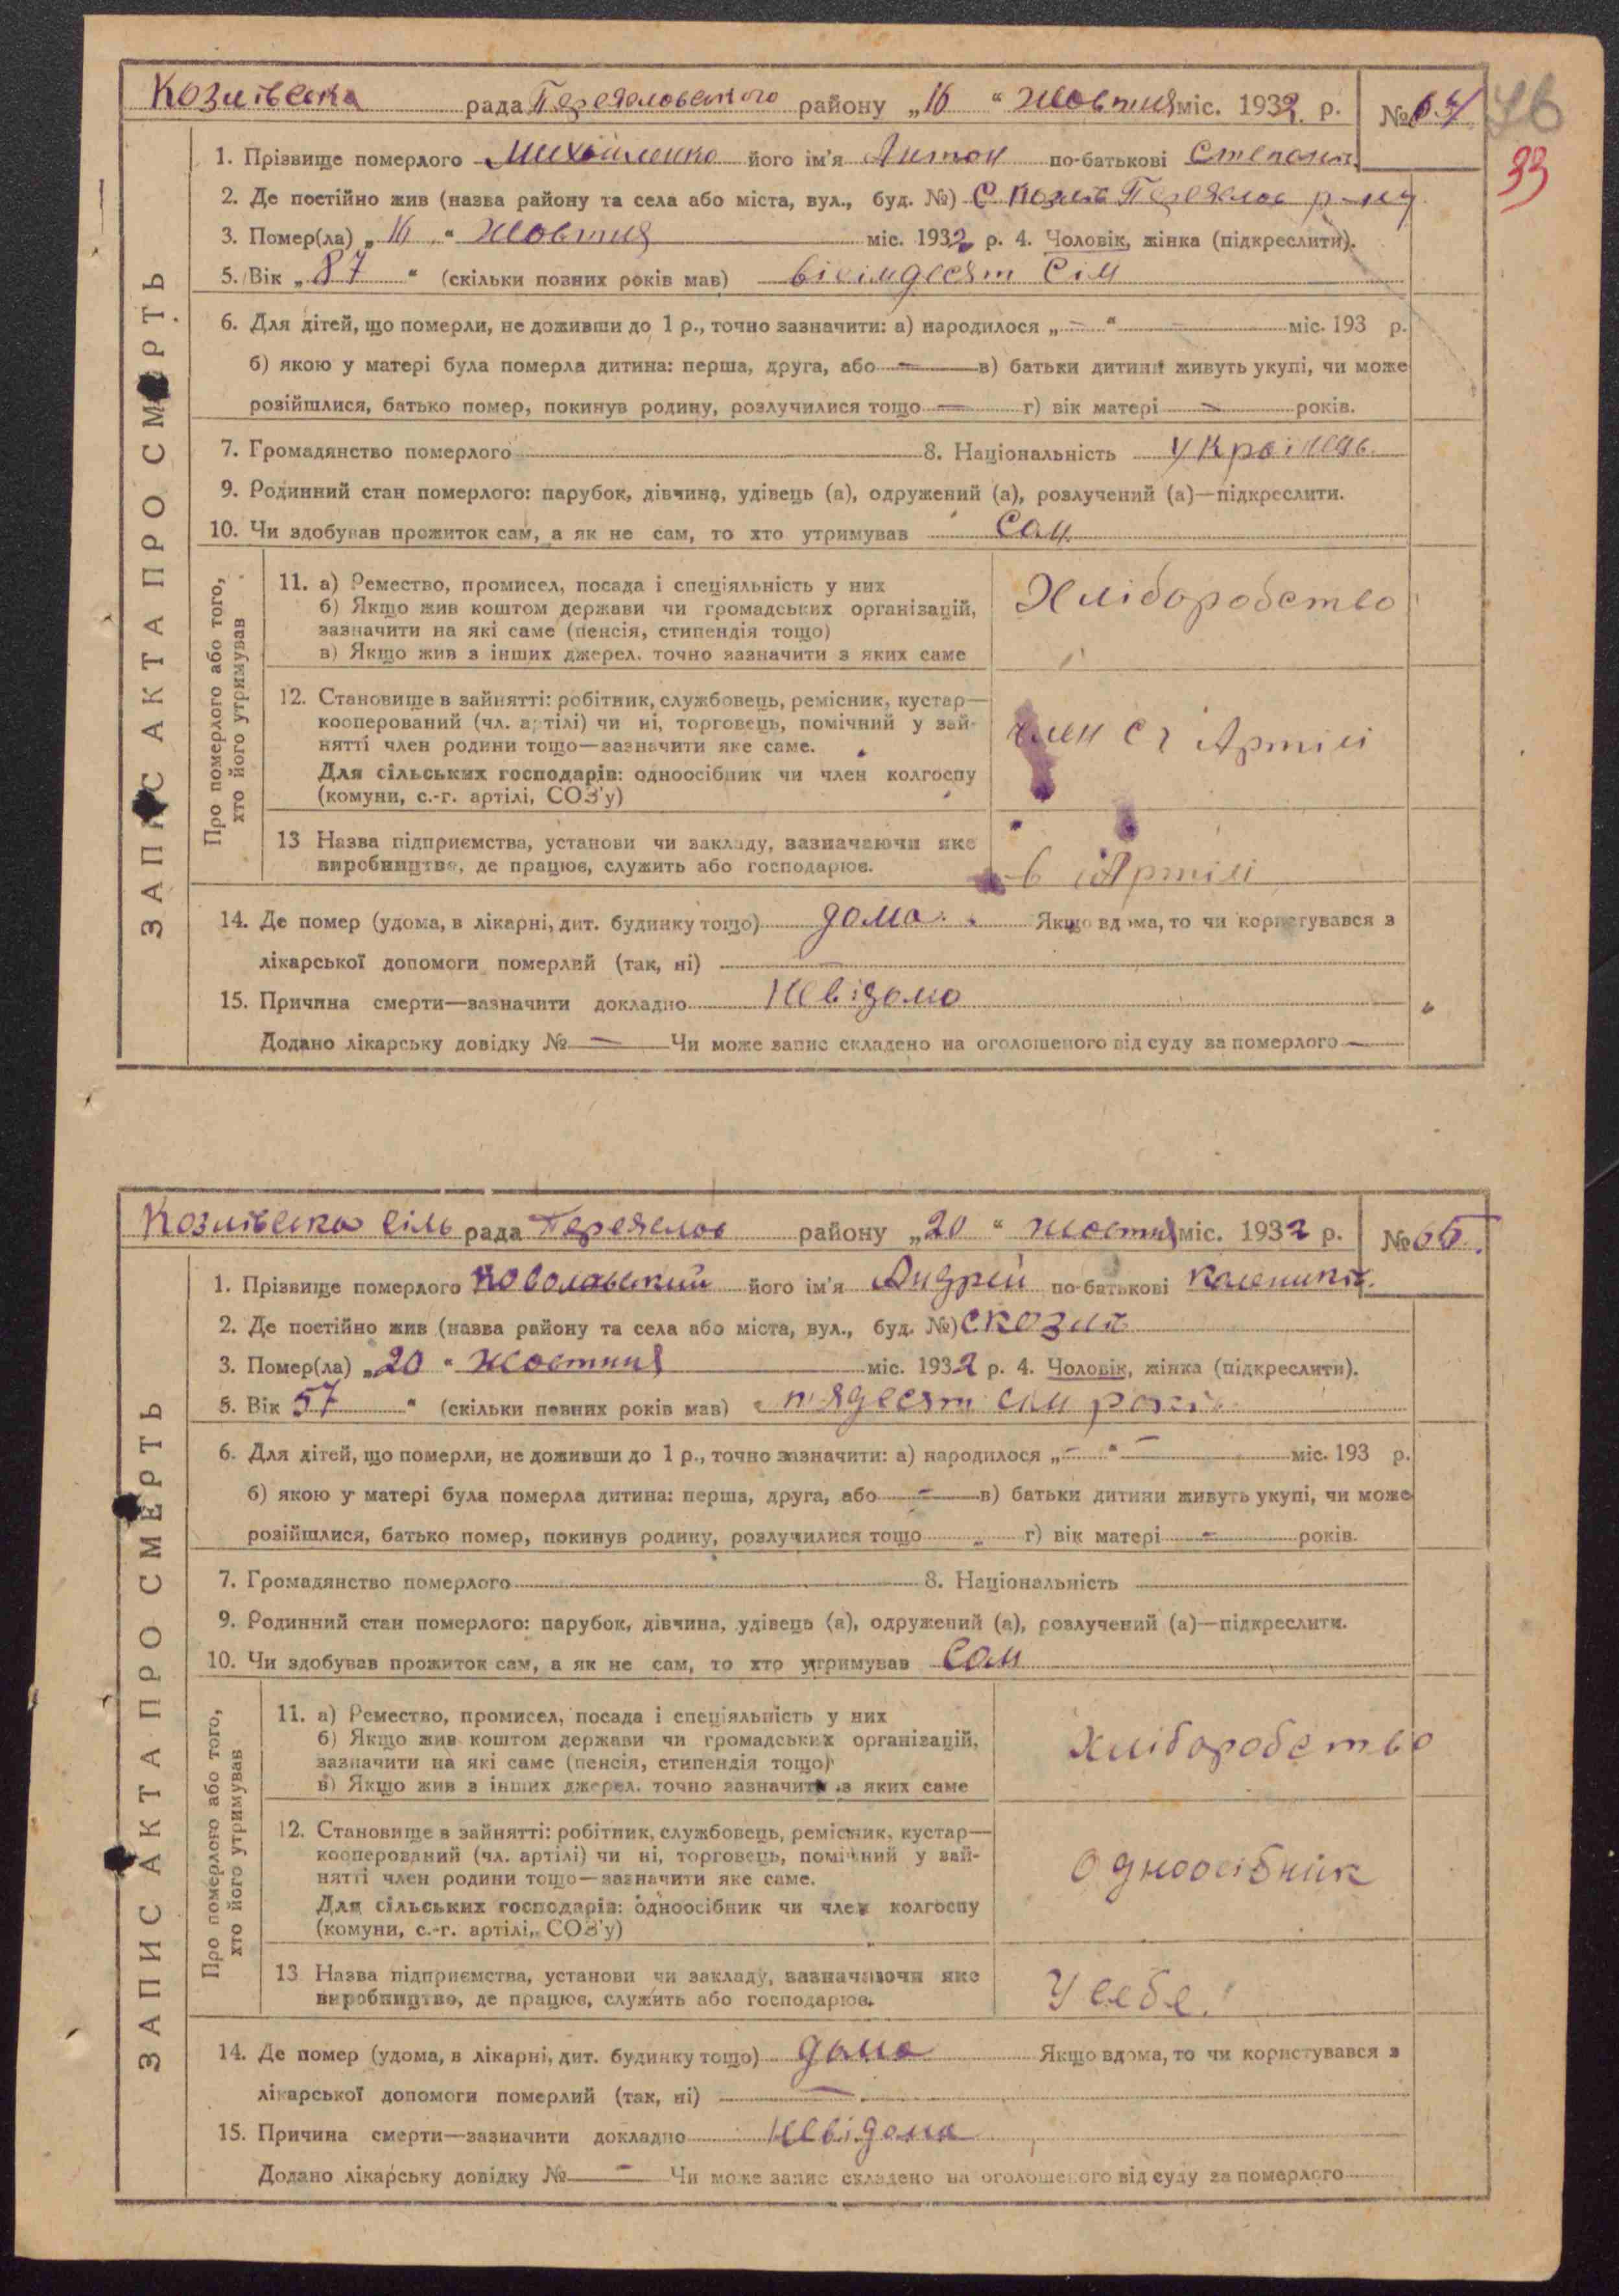 Козлівська рада Переяловського району „16“ жовтня міс. 1932 р. №64 76
33
1. Прізвище померлого Михайленко його ім'я Антон по-батькові Степанп
2. Де постійно жив (назва району та села або міста, вул., буд. №) С Козлів Переяслов р-ну
3. Помер(ла) „16“ жовтня міс. 1932 р. 4. Чоловік, жінка (підкреслити).
5. Вік „87“ (скільки повних років мав) вісімдесят сім
6. Для дітей, що померли, не доживши до 1 р., точно зазначити: а) народилося „—“ — міс. 193 р.
б) якою у матері була померла дитина: перша, друга, або — в) батьки дитини живуть укупі, чи може
розійшлися, батько помер, покинув родину, розлучилися тощо — г) вік матері — років.
7. Громадянство померлого 8. Національність Українець.
9. Родинний стан померлого: парубок, дівчина, удівець (а), одружений (а), розлучений (а)—підкреслити.
10. Чи здобував прожиток сам, а як не сам, то хто утримував Сам
ЗАПИС АКТА ПРО СМЕРТЬ
Про померлого або того, хто його утримував
11. а) Ремество, промисел, посада і спеціяльність у них
б) Якщо жив коштом держави чи громадських організацій,
зазначити на які саме (пенсія, стипендія тощо)
в) Якщо жив з інших джерел. точно зазначити з яких саме
Хліборобство
12. Становище в зайнятті: робітник, службовець, ремісник, кустар—
кооперований (чл. артілі) чи ні, торговець, помічний у зай-
нятті член родини тощо—зазначити яке саме.
Для сільських господарів: одноосібник чи член колгоспу
(комуни, с.-г. артілі, СОЗ'у)
член с г Артілі
13 Назва підприємства, установи чи закладу, зазначаючи яке
виробництво, де працює, служить або господарює.
в Артілі
14. Де помер (удома, в лікарні, дит. будинку тощо) дома. Якщо вдома, то чи користувався з
лікарської допомоги померлий (так, ні) —
15. Причина смерти—зазначити докладно Невідомо
Додано лікарську довідку № — Чи може запис складено на оголошеного від суду за померлого —
Козлівська сіль рада Переяслов району „20“ жостня міс. 1932 р. №65.
1. Прізвище померлого його ім'я Андрей по-батькові
2. Де постійно жив (назва району та села або міста, вул., буд. №) с козлів
3. Помер(ла) „20“ жостня міс. 1932 р. 4. Чоловік, жінка (підкреслити).
5. Вік 57 “ (скільки повних років мав) пядесят сим років
6. Для дітей, що померли, не доживши до 1 р., точно зазначити: а) народилося „—“ — міс. 193 р.
б) якою у матері була померла дитина: перша, друга, або — в) батьки дитини живуть укупі, чи може
розійшлися, батько помер, покинув родину, розлучилися тощо - г) вік матері — років.
7. Громадянство померлого 8. Національність
9. Родинний стан померлого: парубок, дівчина, удівець (а), одружений (а), розлучений (а)—підкреслити.
10. Чи здобував прожиток сам, а як не сам, то хто утримував Сам
ЗАПИС АКТА ПРО СМЕРТЬ
Про померлого або того, хто його утримував
11. а) Ремество, промисел, посада і спеціяльність у них
б) Якщо жив коштом держави чи громадських організацій,
зазначити на які саме (пенсія, стипендія тощо)
в) Якщо жив з інших джерел. точно зазначити з яких саме
Хліборобство
12. Становище в зайнятті: робітник, службовець, ремісник, кустар—
кооперований (чл. артілі) чи ні, торговець, помічний у зай-
нятті член родини тощо—зазначити яке саме.
Для сільських господарів: одноосібник чи член колгоспу
(комуни, с.-г. артілі, СОЗ'у)
Одноосібник
13 Назва підприємства, установи чи закладу, зазначаючи яке
виробництво, де працює, служить або господарює.
У себе.
14. Де помер (удома, в лікарні, дит. будинку тощо) дома Якщо вдома, то чи користувався з
лікарської допомоги померлий (так, ні) —
15. Причина смерти—зазначити докладно Невідома
Додано лікарську довідку № — Чи може запис складено на оголошеного від суду за померлого